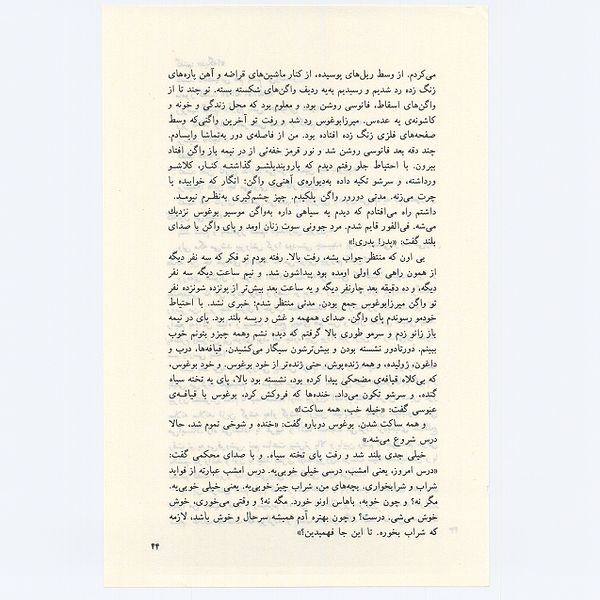 می‌کردم. از وسط ریل‌های پوسیده، از کنار ماشین‌های قراضه و آهن پاره‌های
زنگ زده رد شدیم و رسیدیم به‌یه ردیف واگن‌های شکسته بسته. تو چند تا از
واگن‌های اسقاط، فانوسی روشن بود. و معلوم بود که محل زندگی و خونه و
کاشونه‌ی یه عده‌س. میرزابوغوس رد شد و رفت تو آخرین واگنی‌که وسط
صفحه‌های فلزی زنگ زده افتاده بود. من از فاصله‌ی دور به‌تماشا وایسادم.
چند دقه بعد فانوسی روشن شد و نور قرمز خفه‌ئی از در نیمه باز واگن افتاد
بیرون. با احتیاط جلو رفتم دیدم که یاروبندیلشو گذاشته کنار، کلاشو
ورداشته، و سرشو تکیه داده به‌دیواره‌ی آهنی‌ی واگن؛ انگار که خوابیده یا
چرت می‌زنه. مدتی دورور واگن پلکیدم. چیز چشم‌گیری به‌نظرم نیومد.
داشتم راه می‌افتادم که دیدم یه سیاهی داره به‌واگن موسیو بوغوس نزدیک
می‌شه. فی‌الفور قایم شدم. مرد جوونی سوت زنان اومد و پای واگن با صدای
بلند گفت: «پدر! پدری!»
بی اون که منتظر جواب بشه، رفت بالا. رفته بودم تو فکر که سه نفر دیگه
از همون راهی که اولی اومده بود پیداشون شد. و نیم ساعت دیگه سه نفر
دیگه، و ده دقیقه بعد چارنفر دیگه و یه ساعت بعد بیش‌تر از پونزده شونزده نفر
تو واگن میرزابوغوس جمع بودن. مدتی منتظر شدم؛ خبری نشد. با احتیاط
خودمو رسوندم پای واگن. صدای همهمه و غش و ریسه بلند بود. پای در نیمه
باز زانو زدم و سرمو طوری بالا گرفتم که دیده نشم وهمه چیزو بتونم خوب
ببینم. دورتادور نشسته بودن و بیش‌ترشون سیگار می‌کشیدن. قیافه‌ها، درب و
داغون، ژولیده، و همه ژنده‌پوش، حتی ژنده‌تر از خود بوغوس. و خود بوغوس،
که بی‌کلاه قیافه‌ی مضحکی پیدا کرده بود، نشسته بود بالا، پای یه تخته سیاه
گنده، و سرشو تکون می‌داد. خنده‌ها که فروکش کرد، بوغوس با قیافه‌ی
عبوسی گفت: «خیله خب، همه ساکت!»
و همه ساکت شدن. بوغوس دوباره گفت: «خنده و شوخی تموم شد، حالا
درس شروع می‌شه.»
خیلی جدی بلند شد و رفت پای تخته سیاه. و با صدای محکمی گفت:
«درس امروز، یعنی امشب، درسی خیلی خوبی‌یه. درس امشب عبارته از فواید
شراب و شرابخواری. بچه‌های من، شراب چیز خوبی‌یه. یعنی خیلی خوبی‌یه.
مگر نه؟ و چون خوبه، باهاس اونو خورد. مگه نه؟ و وقتی می‌خوری، خوش
خوش می‌شی. درست؟ و چون بهتره آدم همیشه سرحال و خوش باشد، لازمه
که شراب بخوره. تا این جا فهمیدین؟»
۴۴